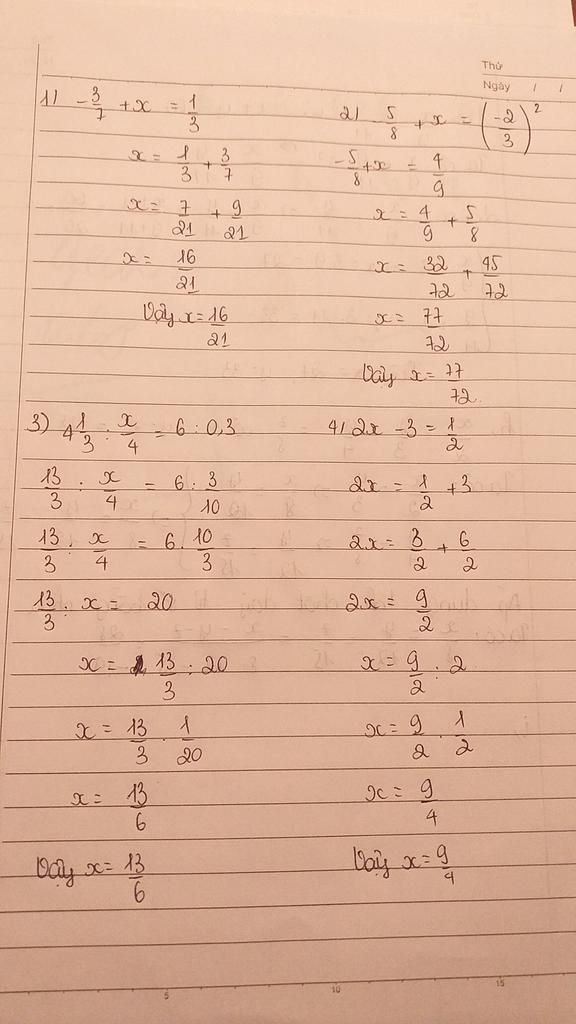 Thứ
Ngày / /
1) -3/7 + x = 1/3
x = 1/3 + 3/7
x = 7/21 + 9/21
x = 16/21
Vậy x = 16/21
2) -5/8 + x = (-2/3)^2
-5/8 + x = 4/9
x = 4/9 + 5/8
x = 32/72 + 45/72
x = 77/72
Vậy x = 77/72.
3) 4 1/3 : x/4 = 6 : 0,3
13/3 : x/4 = 6 : 3/10
13/3 : x/4 = 6 . 10/3
13/3 : x = 20
x = 13/3 : 20
x = 13/3 . 1/20
x = 13/6
Vậy x = 13/6
4) 2x - 3 = 1/2
2x = 1/2 + 3
2x = 3/2 + 6/2
2x = 9/2
x = 9/2 : 2
x = 9/2 . 1/2
x = 9/4
Vậy x = 9/4
5 10 15